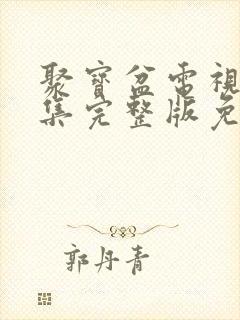 聚寶盆電視
集完整版免
郭丹青